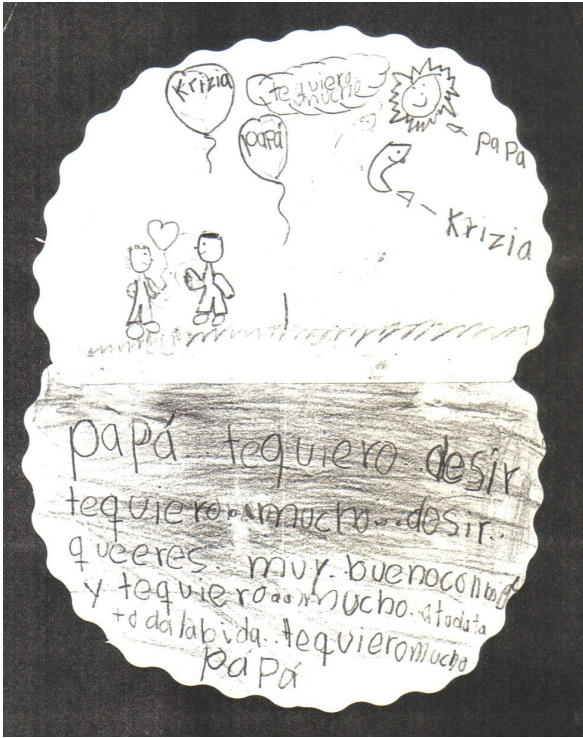 Krizia
te quiero
mucho
papá
papa
Krizia
papá tequiero desir
tequiero..mucho...desir.
queeres. muy. buenocon
y tequiero...mucho. atodata
todalabida. tequieromucho
papá